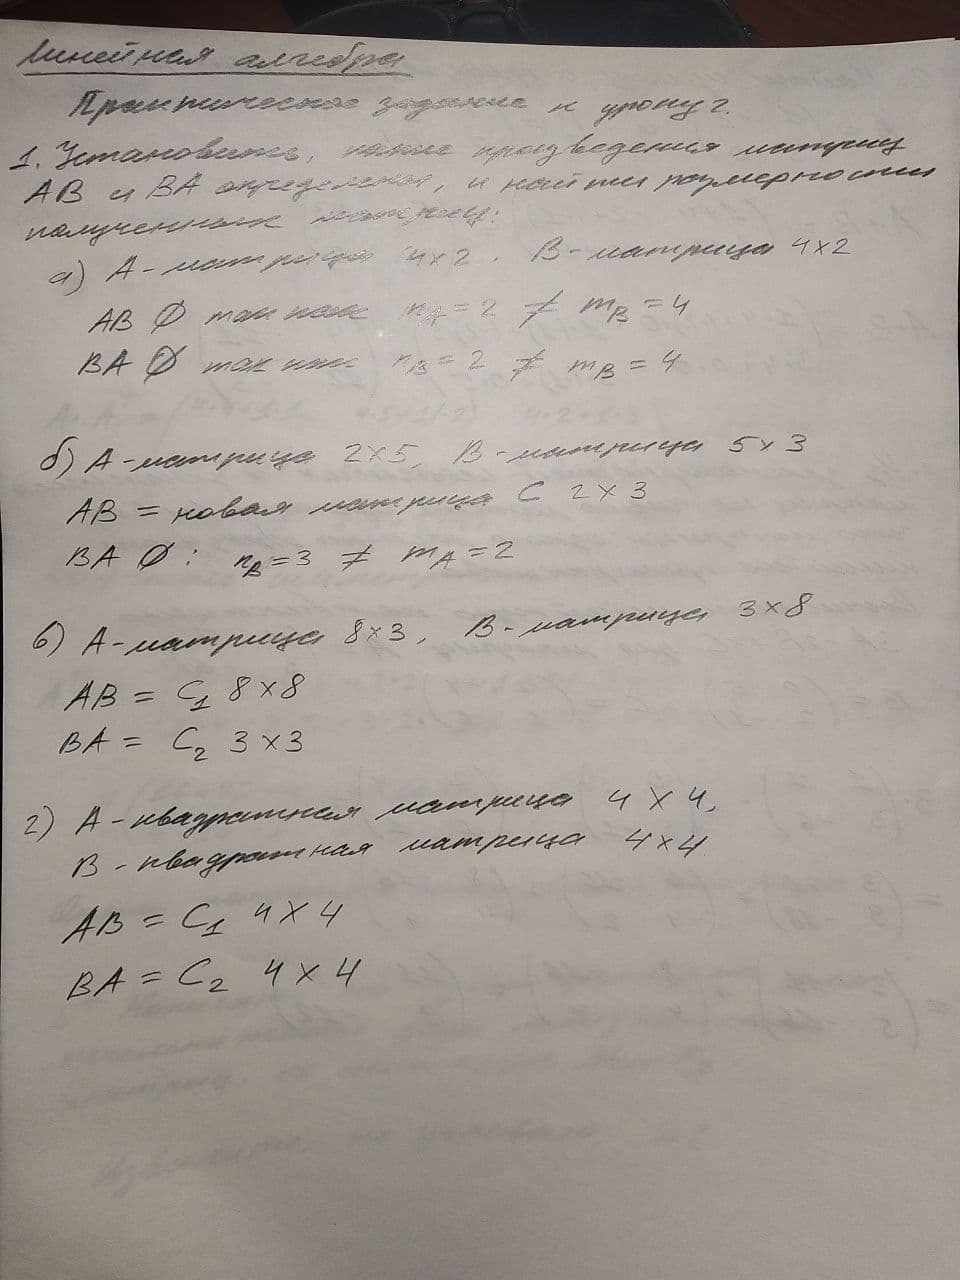 Линейная алгебра
Практическое задание к уроку 2.
1. Установить, какие произведения матриц
AB и BA определены, и найти размерности
полученных матриц:
а) A - матрица 4x2, B - матрица 4x2
AB ∅ так как n_A = 2 ≠ m_B = 4
BA ∅ так как n_B = 2 ≠ m_B = 4
б) A - матрица 2x5, B - матрица 5x3
AB = новая матрица C 2x3
BA ∅: n_B = 3 ≠ m_A = 2
в) A - матрица 8x3, B - матрица 3x8
AB = C_1 8x8
BA = C_2 3x3
г) A - квадратная матрица 4x4,
B - квадратная матрица 4x4
AB = C_1 4x4
BA = C_2 4x4